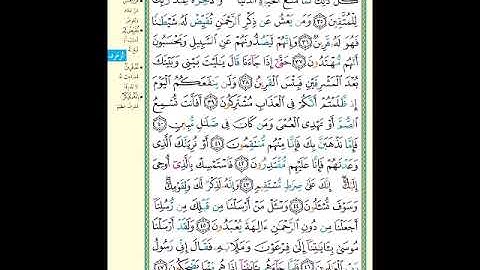 كُلُّ ذَٰلِكَ لَمَّا مَتَٰعُ الْحَيَوٰةِ الدُّنْيَا وَالْءَاخِرَةُ عِندَ رَبِّكَ
لِلْمُتَّقِينَ ٣٥ وَمَن يَعْشُ عَن ذِكْرِ الرَّحْمَٰنِ نُقَيِّضْ لَهُ شَيْطَٰنًا
فَهُوَ لَهُ قَرِينٌ ٣٦ وَإِنَّهُمْ لَيَصُدُّونَهُمْ عَنِ السَّبِيلِ وَيَحْسَبُونَ
أَنَّهُم مُّهْتَدُونَ ٣٧ حَتَّىٰ إِذَا جَاءَنَا قَالَ يَٰلَيْتَ بَيْنِي وَبَيْنَكَ
بُعْدَ الْمَشْرِقَيْنِ فَبِئْسَ الْقَرِينُ ٣٨ وَلَن يَنفَعَكُمُ الْيَوْمَ
إِذ ظَّلَمْتُمْ أَنَّكُمْ فِي الْعَذَابِ مُشْتَرِكُونَ ٣٩ أَفَأَنتَ تُسْمِعُ
الصُّمَّ أَوْ تَهْدِي الْعُمْيَ وَمَن كَانَ فِي ضَلَٰلٍ مُّبِينٍ ٤٠
فَإِمَّا نَذْهَبَنَّ بِكَ فَإِنَّا مِنْهُم مُّنتَقِمُونَ ٤١ أَوْ نُرِيَنَّكَ الَّذِي
وَعَدْنَٰهُمْ فَإِنَّا عَلَيْهِم مُّقْتَدِرُونَ ٤٢ فَاسْتَمْسِكْ بِالَّذِي أُوحِيَ
إِلَيْكَ إِنَّكَ عَلَىٰ صِرَٰطٍ مُّسْتَقِيمٍ ٤٣ وَإِنَّهُ لَذِكْرٌ لَّكَ وَلِقَوْمِكَ
وَسَوْفَ تُسْـَٔلُونَ ٤٤ وَسْـَٔلْ مَنْ أَرْسَلْنَا مِن قَبْلِكَ مِن رُّسُلِنَا
أَجَعَلْنَا مِن دُونِ الرَّحْمَٰنِ ءَالِهَةً يُعْبَدُونَ ٤٥ وَلَقَدْ أَرْسَلْنَا
مُوسَىٰ بِـَٔايَٰتِنَا إِلَىٰ فِرْعَوْنَ وَمَلَإِيْهِ فَقَالَ إِنِّي رَسُولُ
رَبِّ الْعَٰلَمِينَ ٤٦ فَلَمَّا جَاءَهُم بِـَٔايَٰتِنَا إِذَا هُم مِّنْهَا يَضْحَكُونَ ٤٧